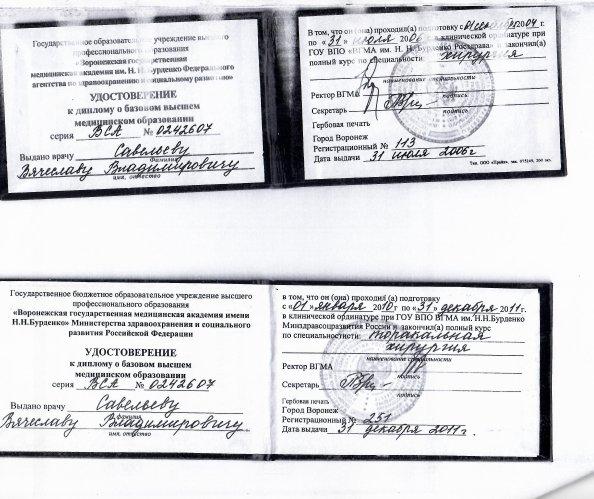 Государственное образовательное учреждение высшего
профессионального образования
«Воронежская государственная
медицинская академия им. Н.Н.Бурденко Федерального
агентства по здравоохранению и социальному развитию»
УДОСТОВЕРЕНИЕ
к диплому о базовом высшем
медицинском образовании
серия ВСА № 0242607
Выдано врачу Савельеву
фамилия
Вячеславу Владимировичу
имя, отчество
В том, что он (она) проходил(а) подготовку с 01 2004 г.
по «31» июля 2006 в клинической ординатуре при
ГОУ ВПО «ВГМА им. Н. Н. Бурденко Росздрава» и закончил(а)
полный курс по специальности: хирургия
наименование специальности
Ректор ВГМА
Секретарь
подпись
Гербовая печать
Город Воронеж
Регистрационный № 113
Дата выдачи 31 июля 2006г
Государственное бюджетное образовательное учреждение высшего
профессионального образования
«Воронежская государственная медицинская академия имени
Н.Н.Бурденко» Министерства здравоохранения и социального
развития Российской Федерации
УДОСТОВЕРЕНИЕ
к диплому о базовом высшем
медицинском образовании
серия ВСА № 0242607
Выдано врачу Савельеву
фамилия
Вячеславу Владимировичу
имя, отчество
в том, что он (она) проходил(а) подготовку
с «01» января 2010 г по «31» декабря 2011г.
в клинической ординатуре при ГОУ ВПО ВГМА им. Н.Н.Бурденко
Минздравсоцразвития России и закончил(а) полный курс
по специальности: торакальная
хирургия
наименование специальности
Ректор ВГМА
подпись
Секретарь
подпись
Гербовая печать
Город Воронеж
Регистрационный № 251
Дата выдачи 31 декабря 2011г.